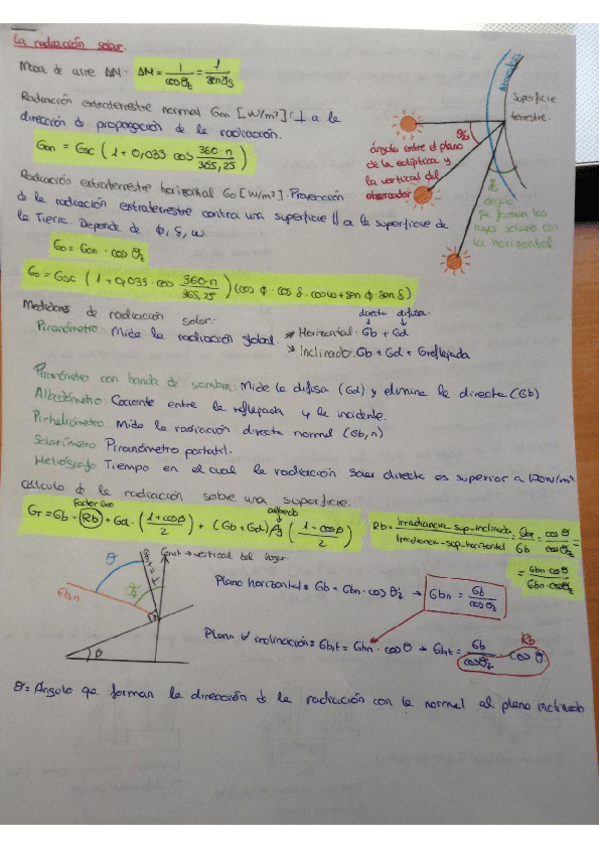 La radiación solar.
Masa de aire AM. AM = 1/cosθz = 1/senγs
Radiación extraterrestre normal Gon [W/m²]: ⊥ a la
dirección de propagación de la radiación.
Gon = Gsc (1 + 0,033 cos 360·n/365,25)
Radiación extraterrestre horizontal. Go [W/m²]. Proyección
de la radiación extraterrestre contra una superficie // a la superficie de
la Tierra. Depende de ϕ, δ, ω
Go = Gon · cos θz
Go = Gsc (1 + 0,033 cos 360·n/365,25)(cos ϕ · cos δ · cos ω + sen ϕ · sen δ)
Atmósfera
Superficie
terrestre.
θz
ángulo entre el plano
de la eclíptica y
la vertical del
observador
ángulo
que forman los
rayos solares con
la horizontal.
Medidores de radiación solar:
directa difusa.
Piranómetro. Mide la radiación global. Horizontal. Gb + Gd
Inclinado. Gb + Gd + Greflejada
Piranómetro con banda de sombra: Mide la difusa (Gd) y elimina la directa (Gb)
Albedómetro: Cociente entre la reflejada y la incidente.
Pirheliómetro. Mide la radiación directa normal (Gb,n)
Solarímetro Piranómetro portatil.
Heliógrafo Tiempo en el cual la radiación solar directa es superior a 120W/m²
Cálculo de la radiación sobre una superficie.
Factor Geo
albedo
GT = Gb · Rb + Gd · (1 + cosβ / 2) + (Gb + Gd) ρg (1 - cosβ / 2)
Rb = Irradiancia-sup-inclinada / Irradiancia-sup-horizontal = Gbt / Gb = cosθ / cosθz =
= Gbn · cosθ / Gbn · cosθz
θ
θz
Gb,n
β
vertical del lugar
Plano horizontal = Gb = Gbn · cosθz → Gbn = Gb / cosθz
Plano ∀ inclinación = Gb,t = Gbn · cosθ → Gb,t = Gb / cosθz · cosθ
Rb
θ = Ángulo qe forman la dirección de la radiación con la normal al plano inclinado